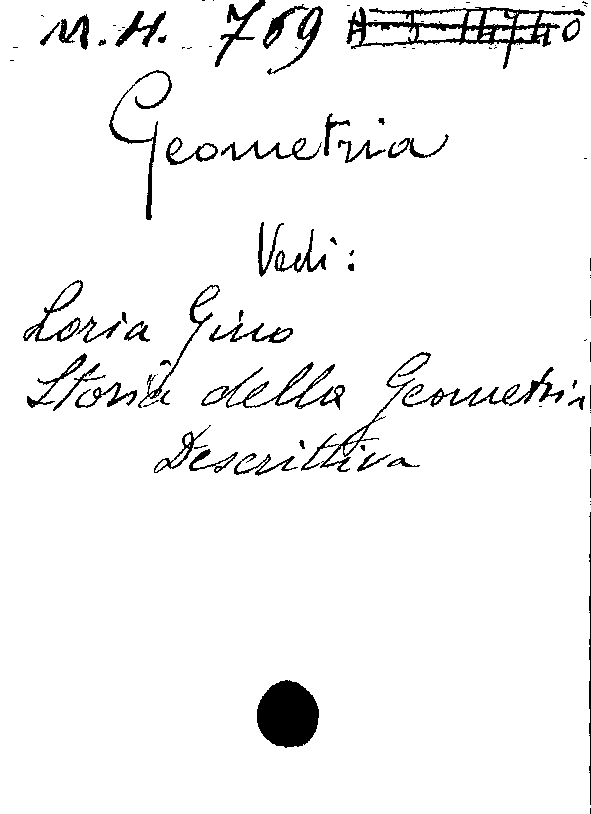 M. H. 769
Geometria
Vedi:
Loria Gino
Storia della Geometria
Descrittiva